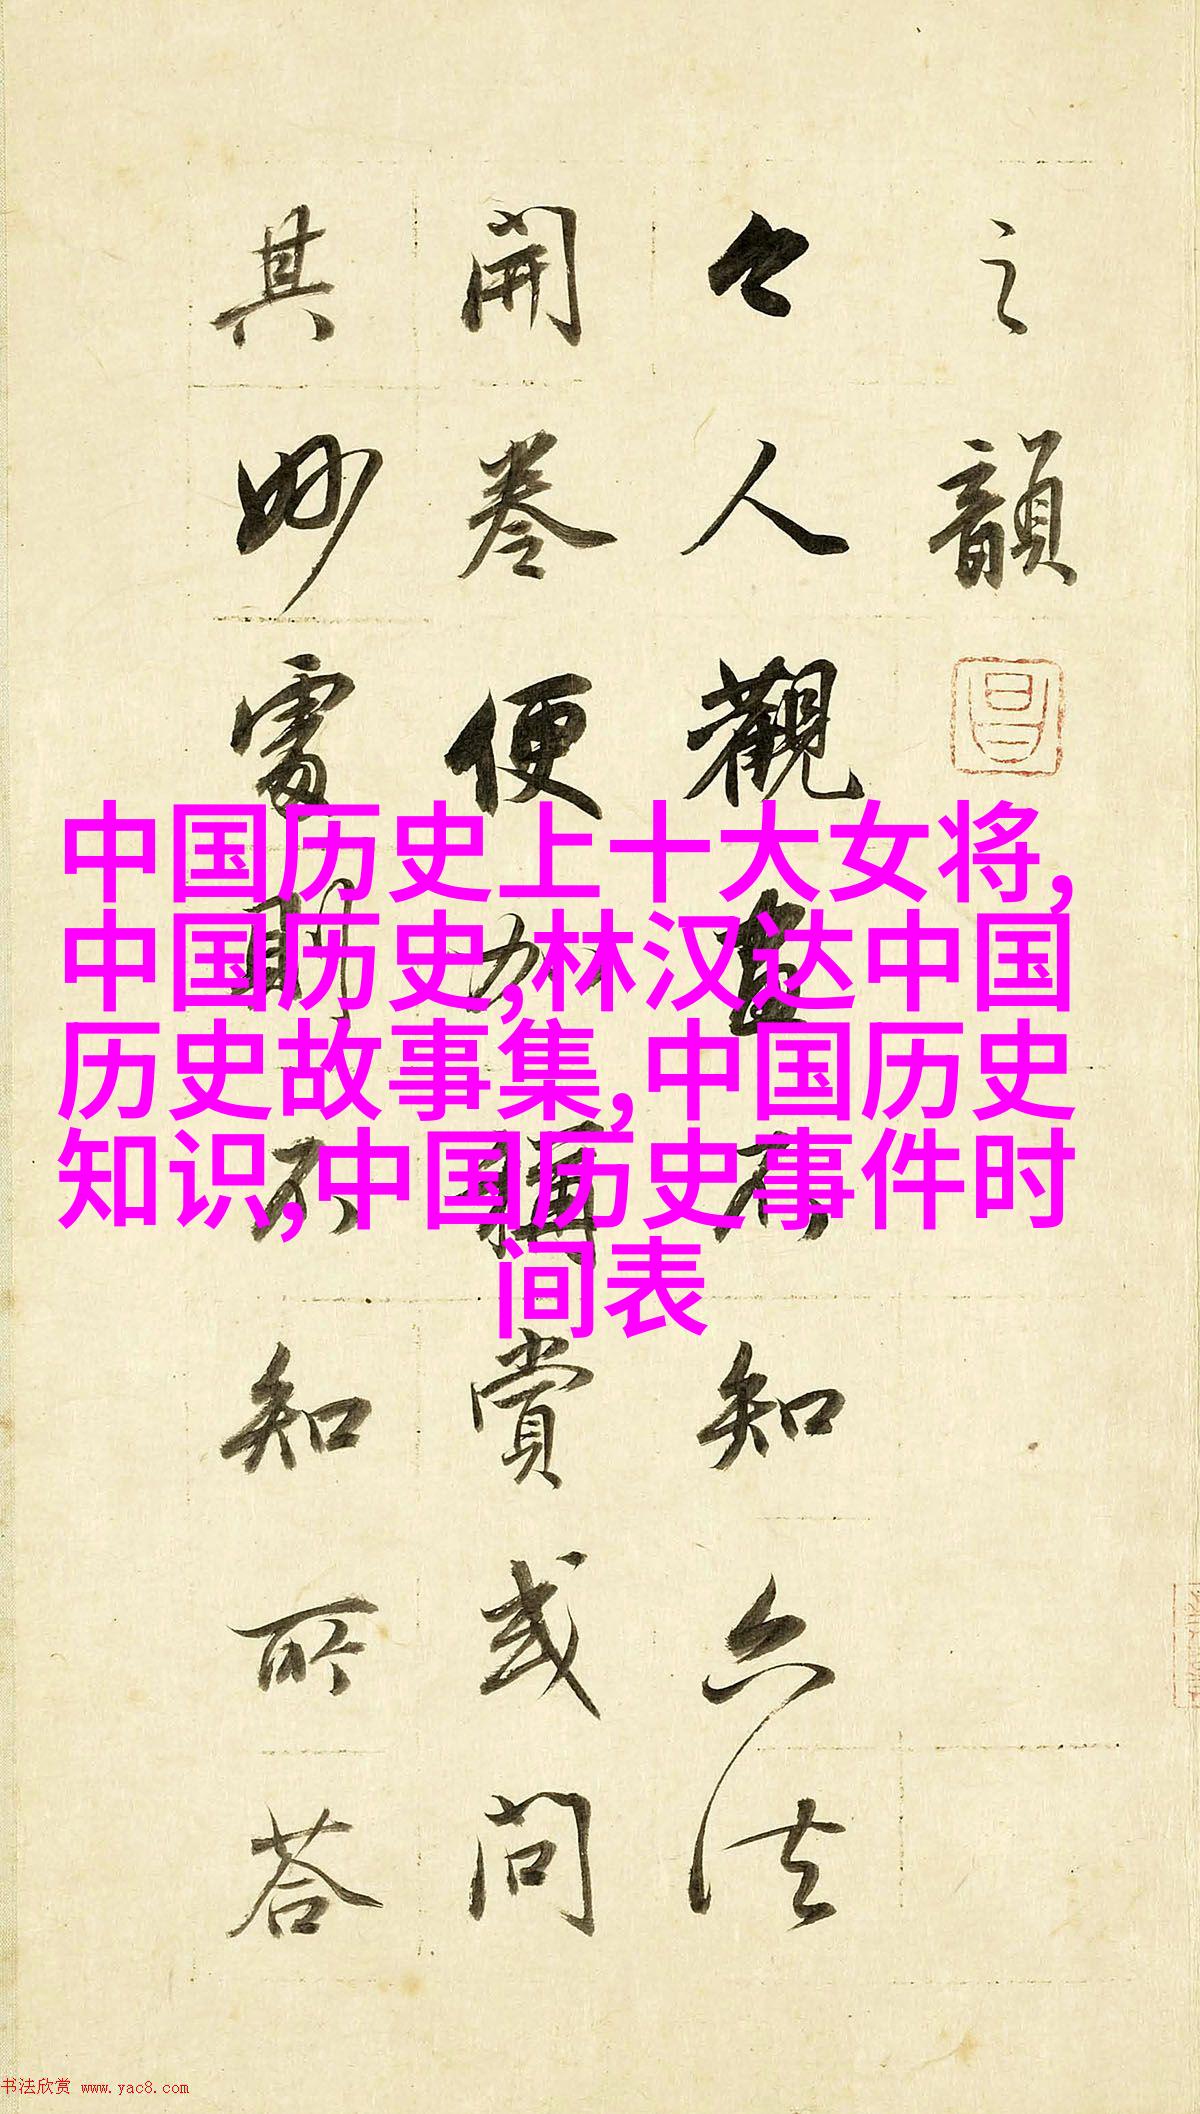 之韻
今人觀畫不知六法
開卷便加稱賞或問
其妙處則不知所荅
中国历史上十大女将,
中国历史,林汉达中国
历史故事集,中国历史
知识,中国历史事件时
间表
书法欣赏 www.yac8.com